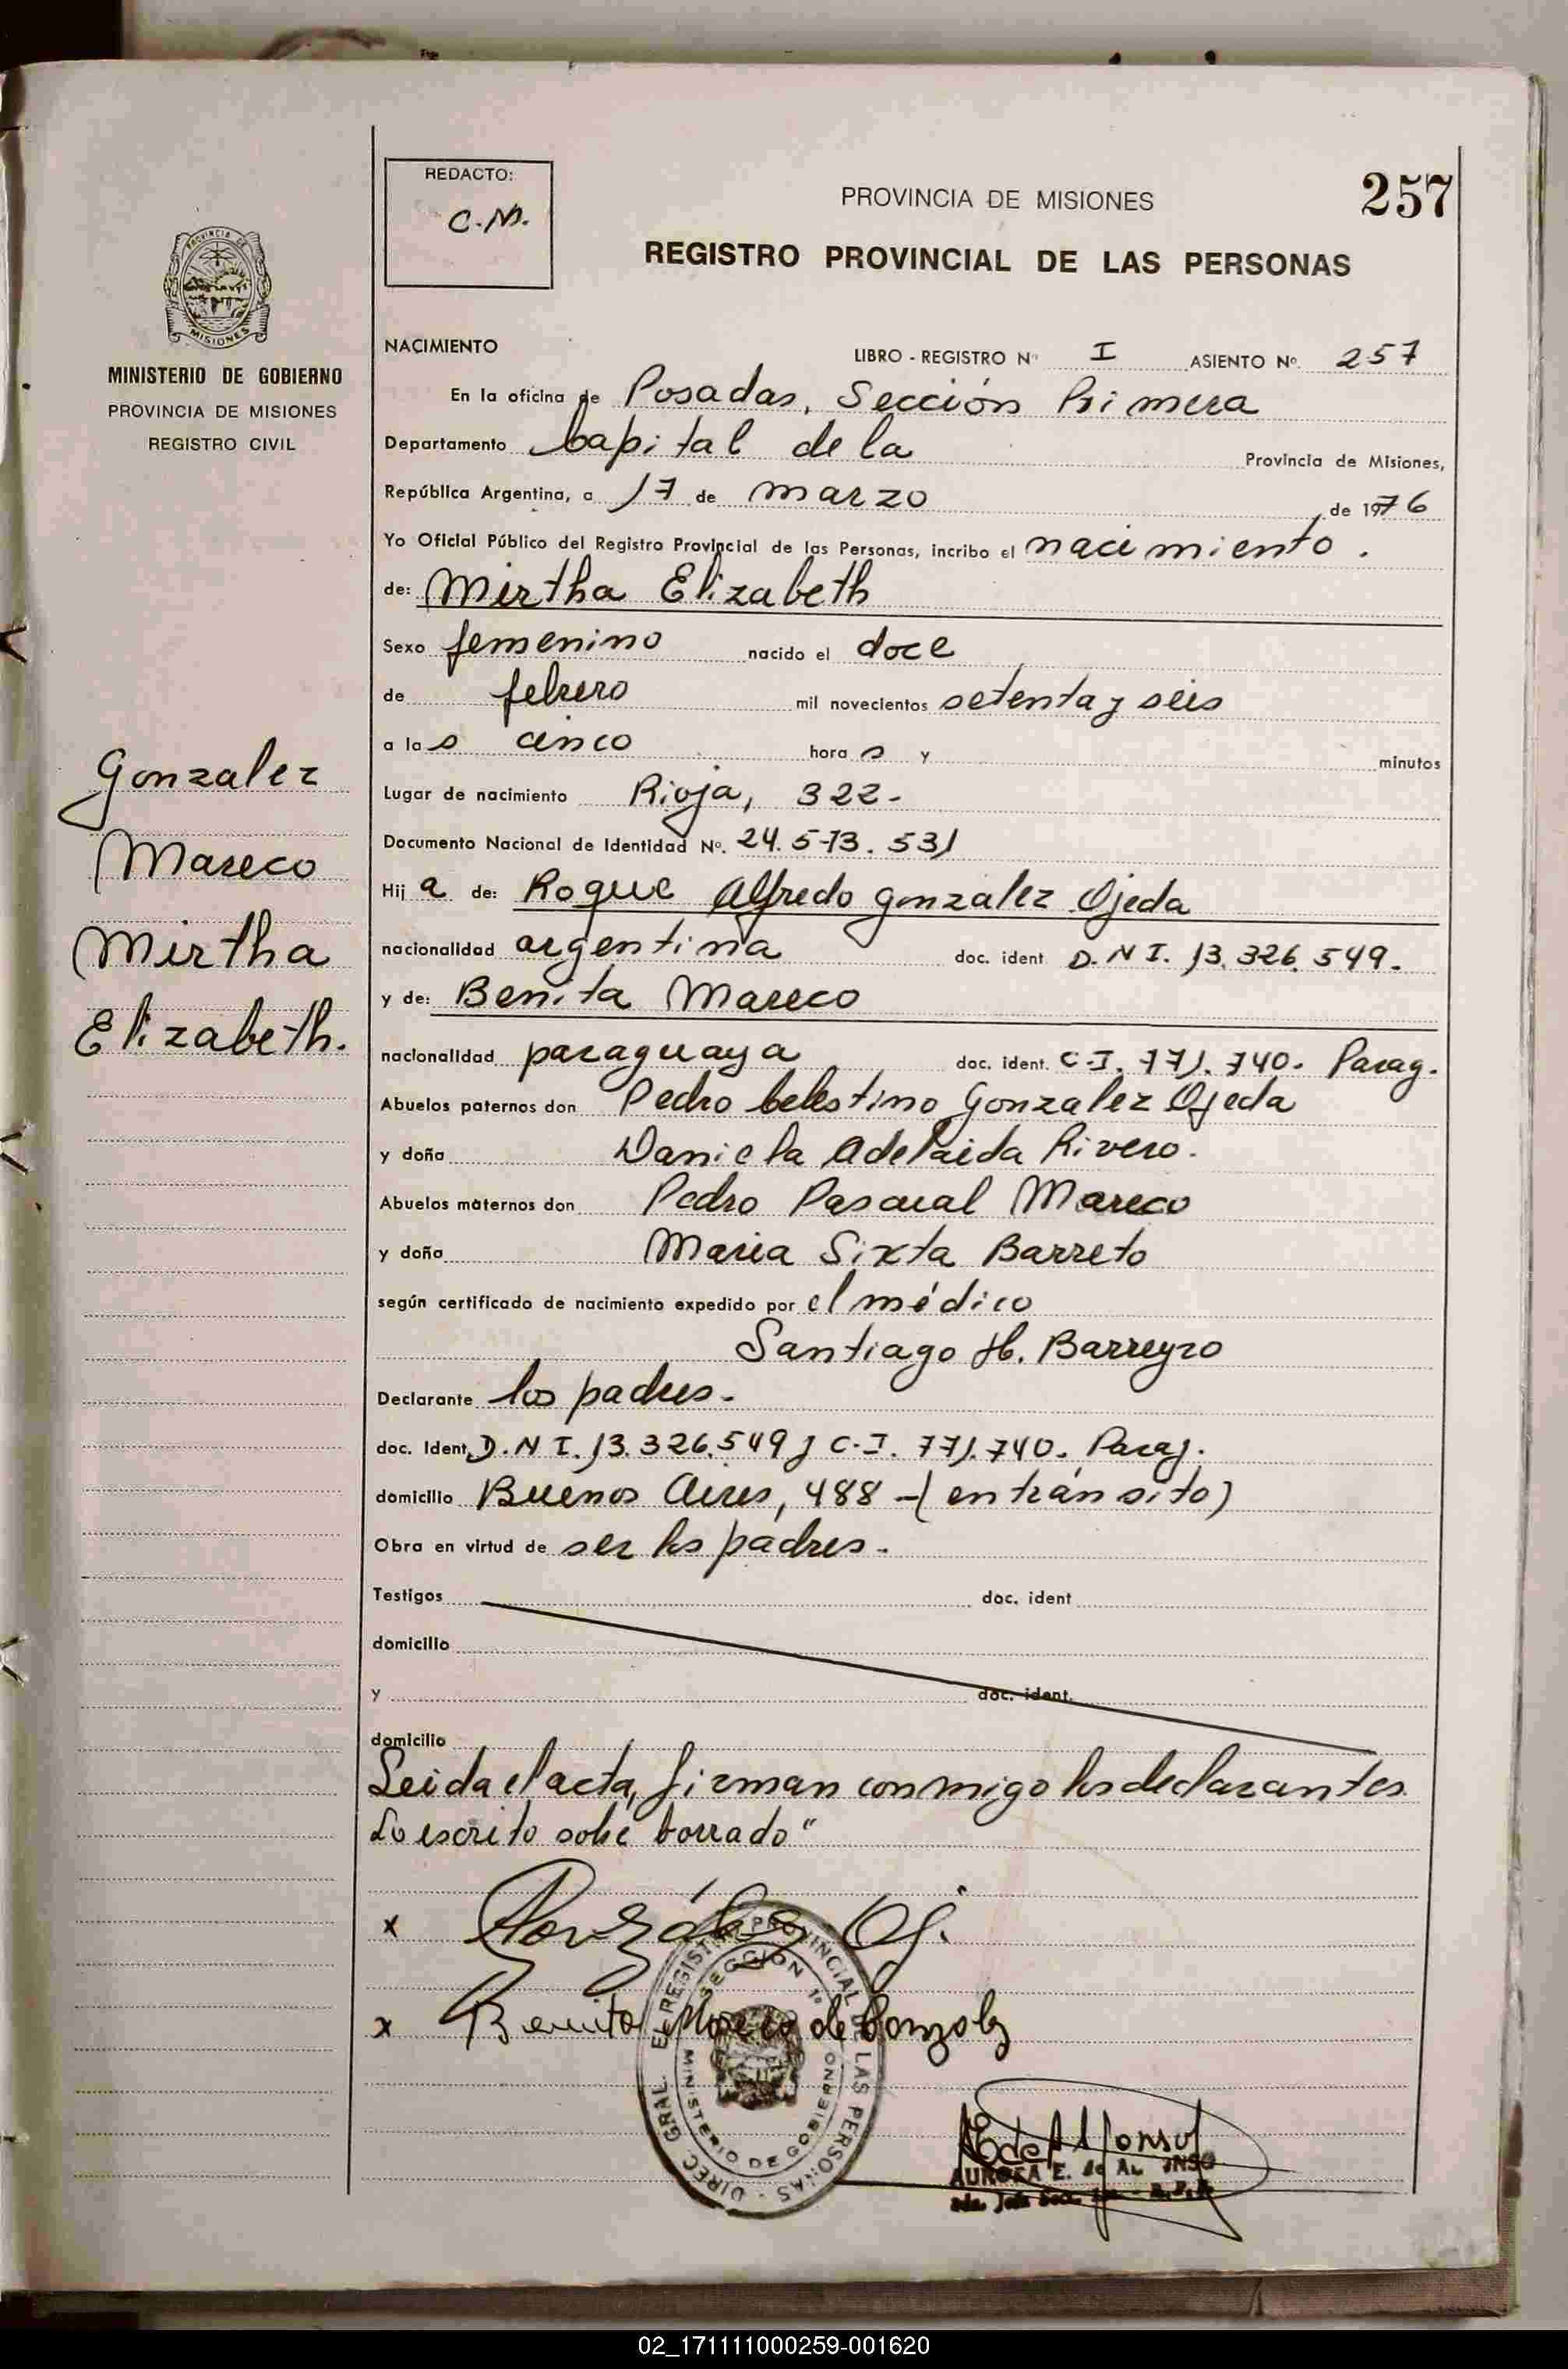 REDACTO:
C.M.
PROVINCIA DE MISIONES
257
REGISTRO PROVINCIAL DE LAS PERSONAS
PROVINCIA DE
MISIONES
MINISTERIO DE GOBIERNO
PROVINCIA DE MISIONES
REGISTRO CIVIL
Gonzalez
Mareco
Mirtha
Elizabeth.
NACIMIENTO LIBRO - REGISTRO Nº I ASIENTO Nº. 257
En la oficina de Posadas, Sección Primera
Departamento Capital de la Provincia de Misiones,
República Argentina, a 17 de marzo de 1976
Yo Oficial Público del Registro Provincial de las Personas, incribo el nacimiento.
de: Mirtha Elizabeth
Sexo femenino nacido el doce
de febrero mil novecientos setenta y seis
a las cinco horas y minutos
Lugar de nacimiento Rioja, 322-
Documento Nacional de Identidad Nº. 24.573.531
Hija de: Roque Alfredo Gonzalez Ojeda
nacionalidad argentina doc. ident D.N.I. 13.326.549.
y de: Benita Mareco
nacionalidad paraguaya doc. ident. C.I. 771.740. Parag.
Abuelos paternos don Pedro Celestino Gonzalez Ojeda
y doña Daniela Adelaida Rivero.
Abuelos maternos don Pedro Pascual Mareco
y doña Maria Sixta Barreto
según certificado de nacimiento expedido por el médico
Santiago H. Barreyro
Declarante los padres.
doc. Ident. D.N.I. 13.326.549 y C.I. 771.740. Parag.
domicilio Buenos Aires, 488 -(en tránsito)
Obra en virtud de ser los padres.
Testigos doc. ident
domicilio
y doc. ident.
domicilio
Leida el acta, firman conmigo los declarantes.
Lo escrito sobre borrado"
x González Oj.
x Benita Mareco de Gonzalez
DIREC. GRAL. DEL REGISTRO PROVINCIAL DE LAS PERSONAS
SECCION 1º
MINISTERIO DE GOBIERNO
AURORA E. de ALFONSO
02_171111000259-001620